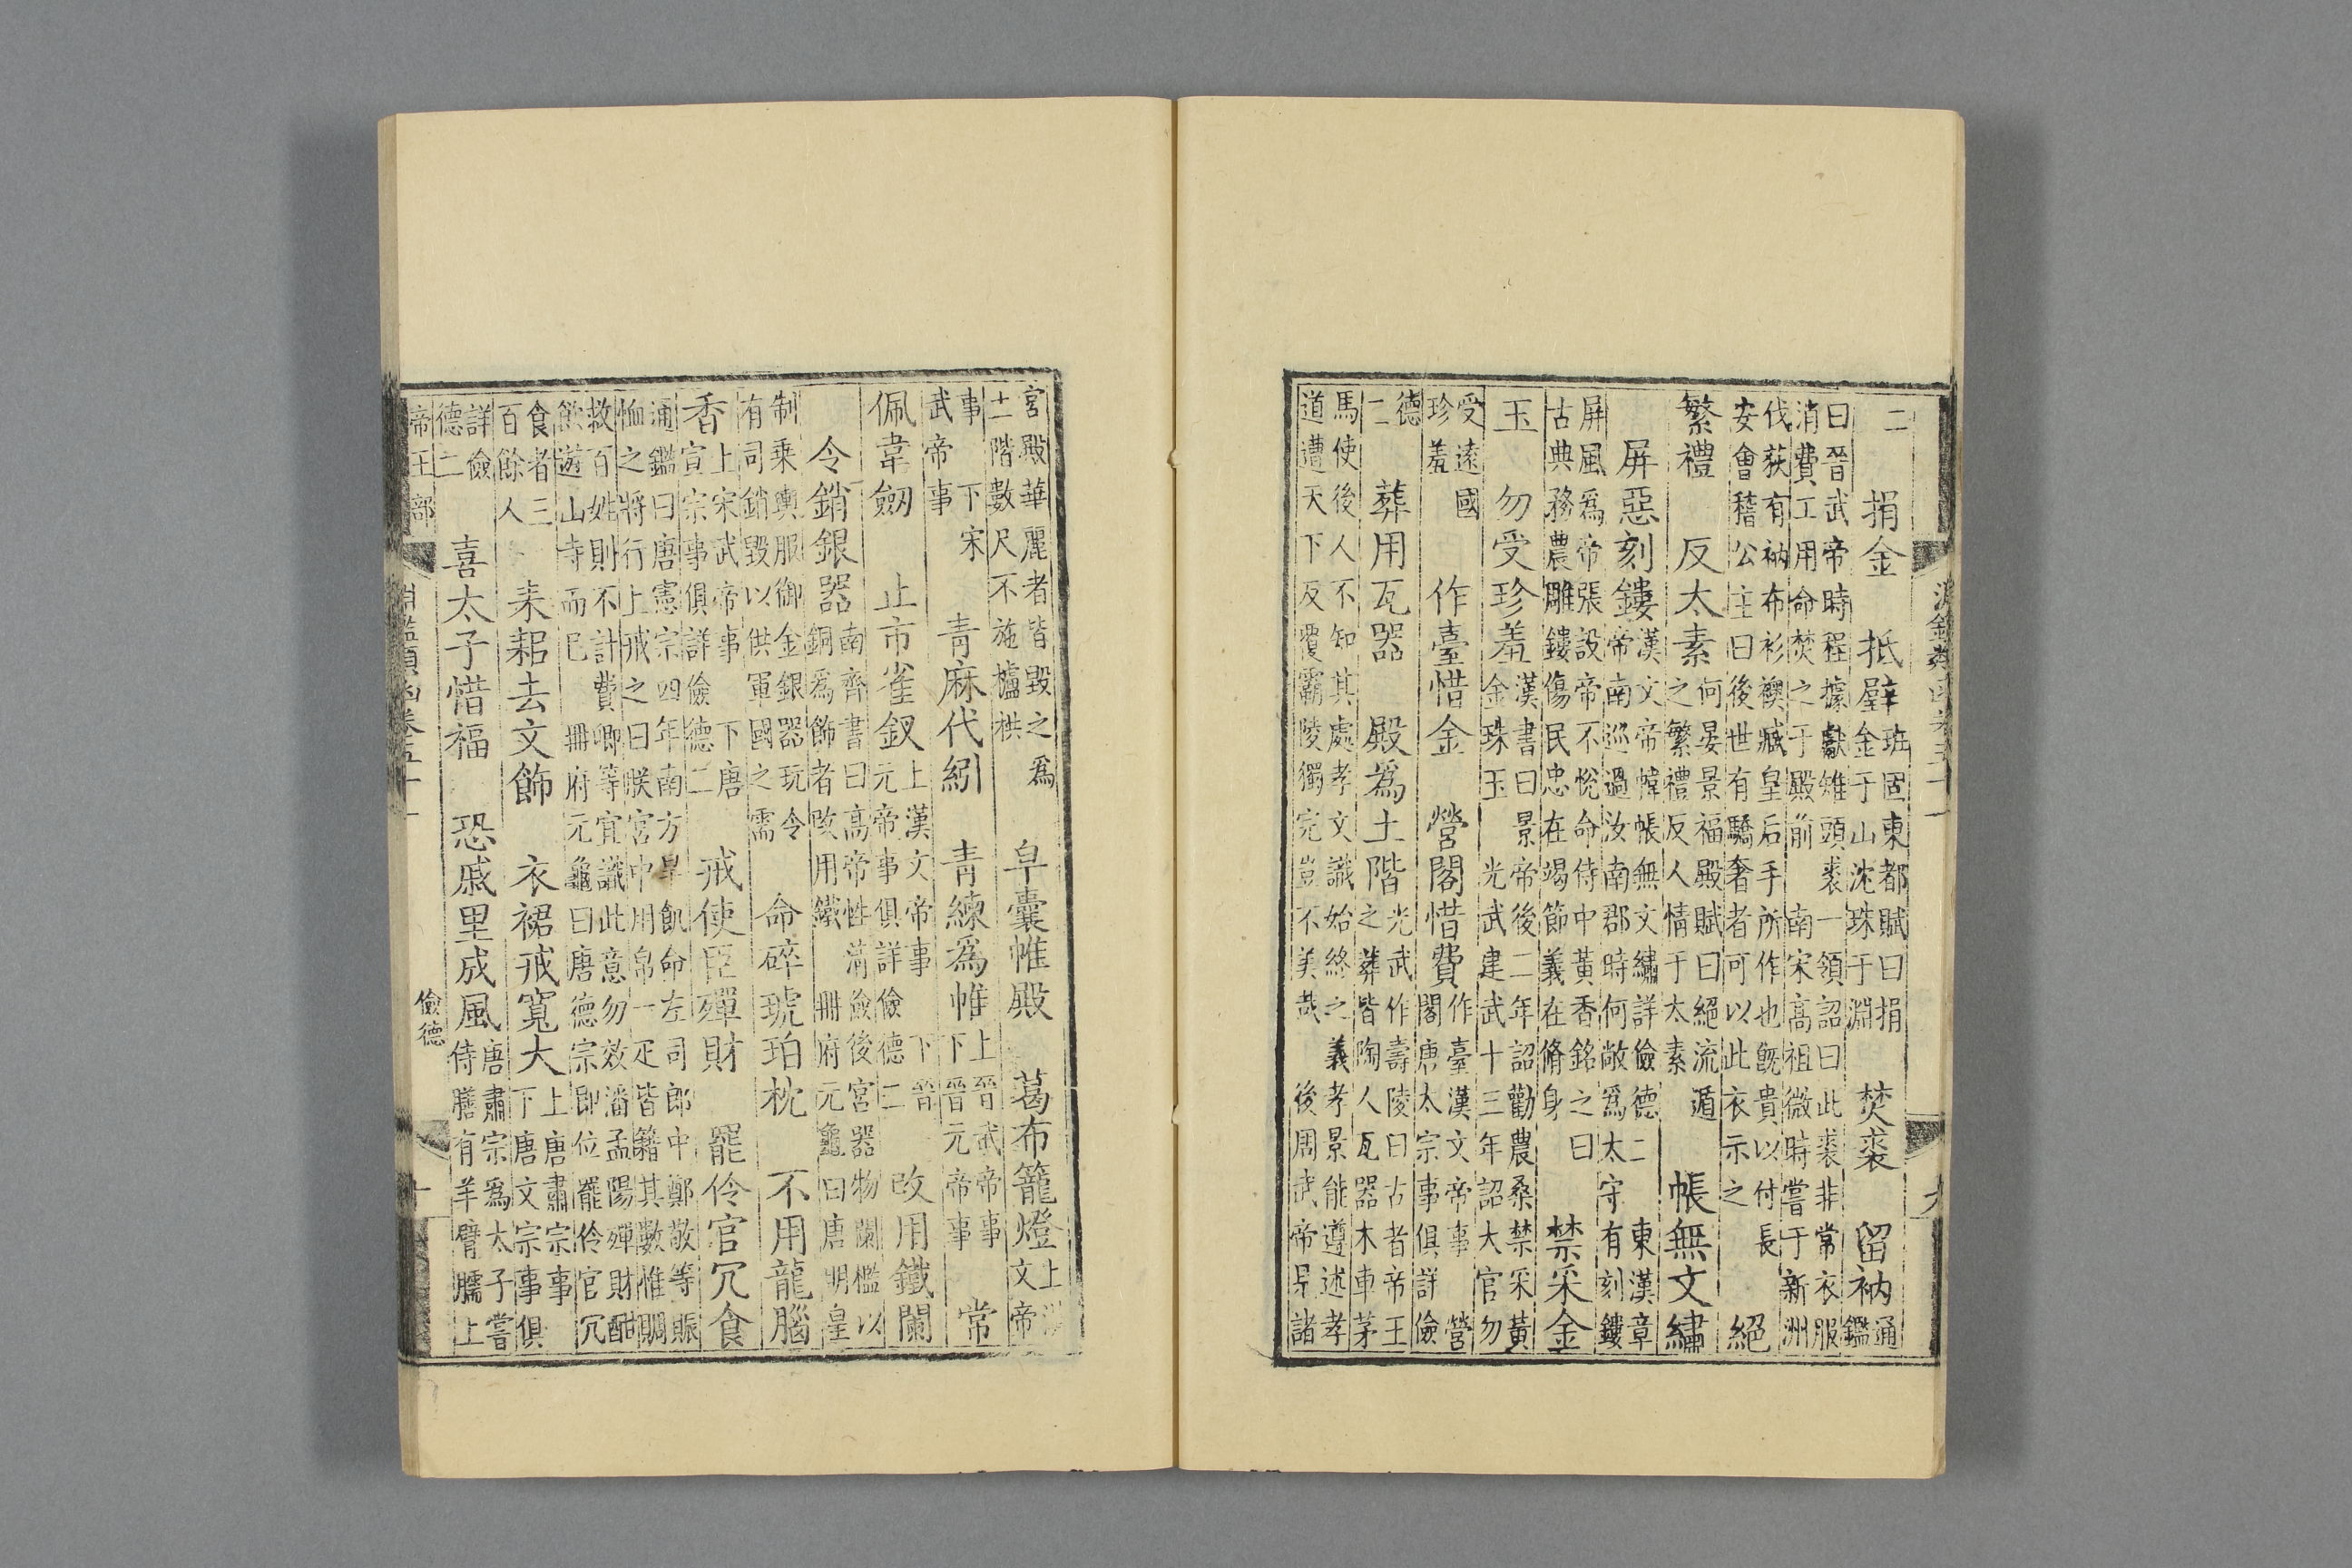 淵鑑類函卷五十一 九
二 捐金 抵璧 班固東都賦曰捐金于山沈珠于淵 焚裘 留衲 通鑑
曰晉武帝時程據獻雉頭裘一領詔曰此裘非常衣服消費工用命焚之于殿前 南宋高祖微時嘗于新洲
伐荻有衲布衫襖臧皇后手所作也旣貴以付長安會稽公主曰後世有驕奢者可以此衣示之 絕
繁禮 反太素 何晏景福殿賦曰絕流遁之繁禮反人情于太素 帳無文繡
屏惡刻鏤 漢文帝幃帳無文繡詳儉德二 東漢章帝南巡過汝南郡時何敞爲太守有刻鏤
屏風爲帝張設帝不悅命侍中黃香銘之曰古典務農雕鏤傷民忠在竭節義在脩身 禁采金
玉 勿受珍羞 漢書曰景帝後二年詔勸農桑禁采黃金珠玉 光武建武十三年詔大官勿
受遠國珍羞 作臺惜金 營閣惜費 作臺漢文帝事 營閣唐太宗事俱詳儉
德二 葬用瓦器 殿爲土階 光武作壽陵曰古者帝王之葬皆陶人瓦器木車茅
馬使後人不知其處孝文識始終之義孝景能遵述孝道遭天下反覆霸陵獨完豈不美哉 後周武帝諸
宮殿華麗者皆毀之爲土階數尺不施櫨栱 皁囊帷殿 葛布籠燈 上漢文帝
事 下宋武帝事 青麻代紖 青練爲帷 上晉武帝事下晉元帝事 常
佩韋劒 止市雀釵 上漢文帝事 下晉元帝事俱詳儉德二 改用鐵闌
令銷銀器 南齊書曰高帝性淸儉後宮器物闌檻以銅爲飾者改用鐵 冊府元龜曰唐明皇
制乘輿服御金銀器玩令有司銷毀以供軍國之需 命碎琥珀枕 不用龍腦
香 上宋武帝事 下唐宣宗事俱詳儉德二 戒使臣殫財 罷伶官冗食
通鑑曰唐憲宗四年南方旱飢命左司郎中鄭敬等賑恤之將行上戒之曰朕宮中用帛一疋皆籍其數惟賙
救百姓則不計費卿等宜識此意勿效潘孟陽殫財酣飲遊山寺而已 冊府元龜曰唐德宗卽位罷伶官冗
食者三百餘人 耒耜去文飾 衣裾戒寬大 上唐肅宗事下唐文宗事俱
詳儉德二 喜太子惜福 恐戚里成風 唐肅宗爲太子嘗侍膳有羊臂臑上
帝王部 淵鑑類函卷五十一 儉德 十